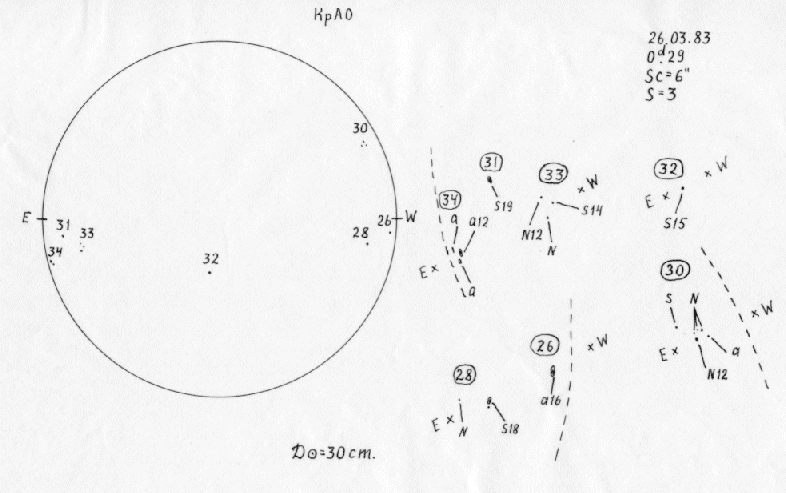 КрАО
26.03.83
0ᵈ.29
Sc=6ᵃ
S=3
30
E
W
31
33
34
26
28
32
31
S19
34
a
a12
E×
a
33
×W
S14
N12
N
32
×W
E×
S15
30
S
N
×W
E×
a
N12
26
×W
a16
28
E×
N
S18
D⊙=30cm.